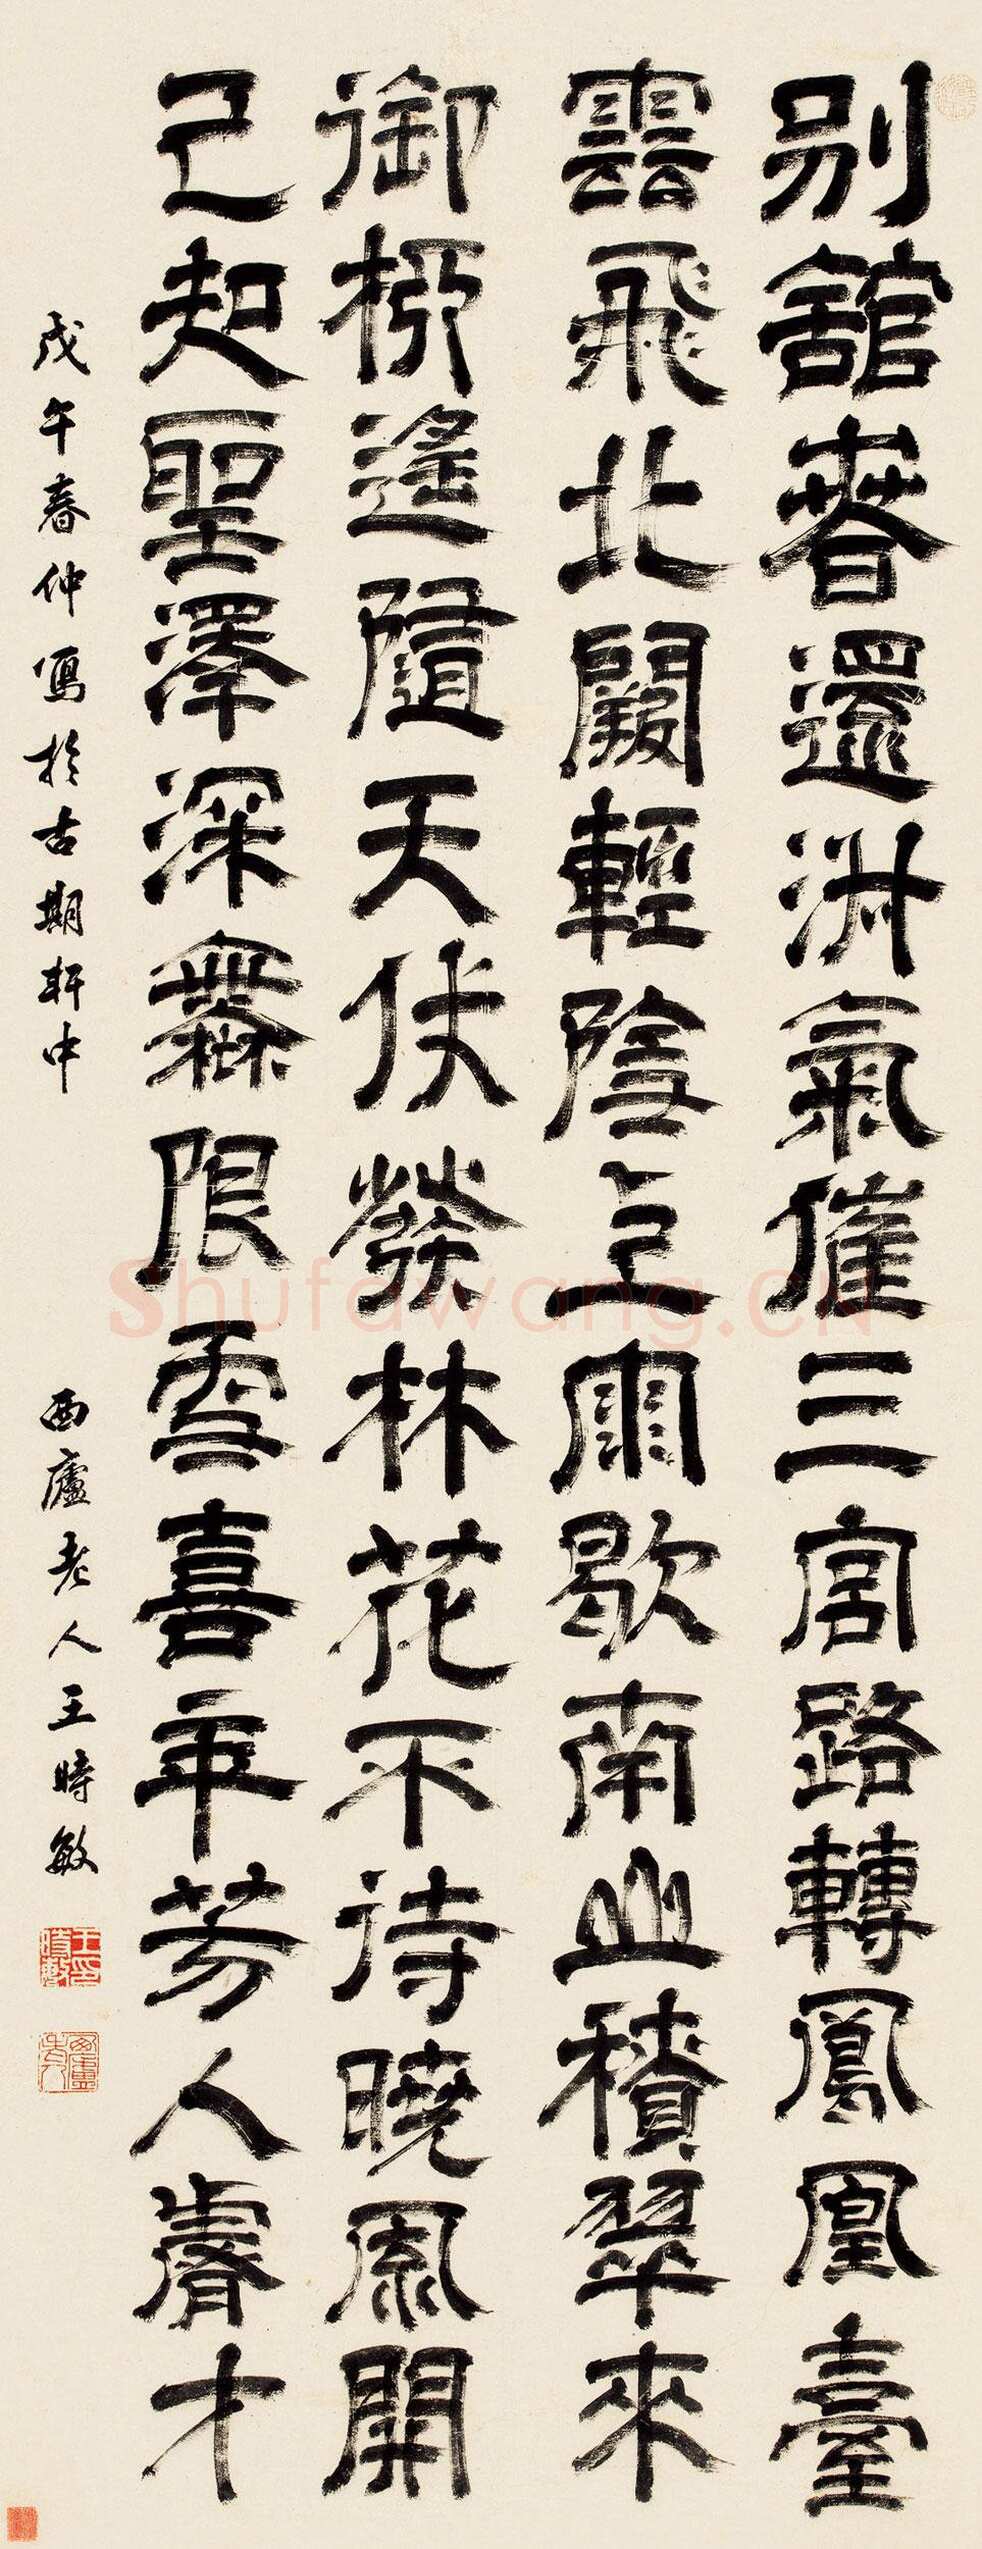 別館春還淑氣催三宮路轉鳳凰臺
雲飛北闕輕陰雨歇南山積翠來
御柳遙隨天仗發林花不待曉風開
已知聖澤深無限雪喜年芳入睿才
戊午春仲寫於古期軒中 西廬老人王時敏
王時敏印
西廬老人
Shufawang.CN